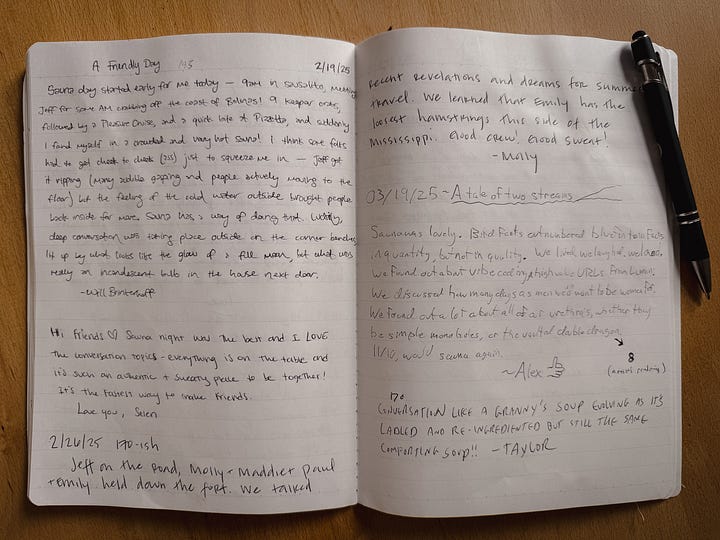 A Friendly Day 195
2/19/25
Sauna day started early for me today — 9am in Sausalito, meeting
Jeff for some AM crabbing off the coast of Bolinas! 9 keeper crabs,
followed by a Pleasure Cruise, and a quick bite at Pizetta, and suddenly
I found myself in a crowded and very hot sauna! I think some folks
had to get cheek to cheek (ass) just to squeeze me in — Jeff got
it ripping (many audible gasping and people actively moving to the
floor) but the feeling of the cold water outside brought people
back inside for more. Sauna has a way of doing that. Luckily,
deep conversation was taking place outside on the corner benches
lit up by what looks like the glow of a full moon, but what was
really an incandescent bulb in the house next door.
-Will Brinkerhoff
Hi friends ♡ Sauna night was the best and I LOVE
the conversation topics - everything is on the table and
it's such an authentic + sweaty place to be together!
It's the fastest way to make friends.
Love you, Suen
2/26/25 170-ish
Jeff on the road, Molly + Maddie + Paul
+ Emily held down the fort. We talked
recent revelations and dreams for summer
travel. We learned that Emily has the
loosest hamstrings this side of the
Mississippi. Good crew! Good sweat!
- Molly
03/19/25 ~ A tale of two streams
Sauna was lovely. Bird Facts outnumbered
in quantity, but not in quality. We lived, we laughed, we loved.
We found out about vibe coding + high value URLs from
We discussed how many days as men we'd want to be women for.
We found out a lot about all of our urethras, whether they
be simple monotubes, or the vaunted double dragon.
11/10, would sauna again.
~Alex
8
(artist's rendering)
170
CONVERSATION LIKE A GRANNY'S SOUP EVOLVING AS IT'S
LADLED AND RE-INGREDIENTED BUT STILL THE SAME
COMFORTING SOUP!! - TAYLOR